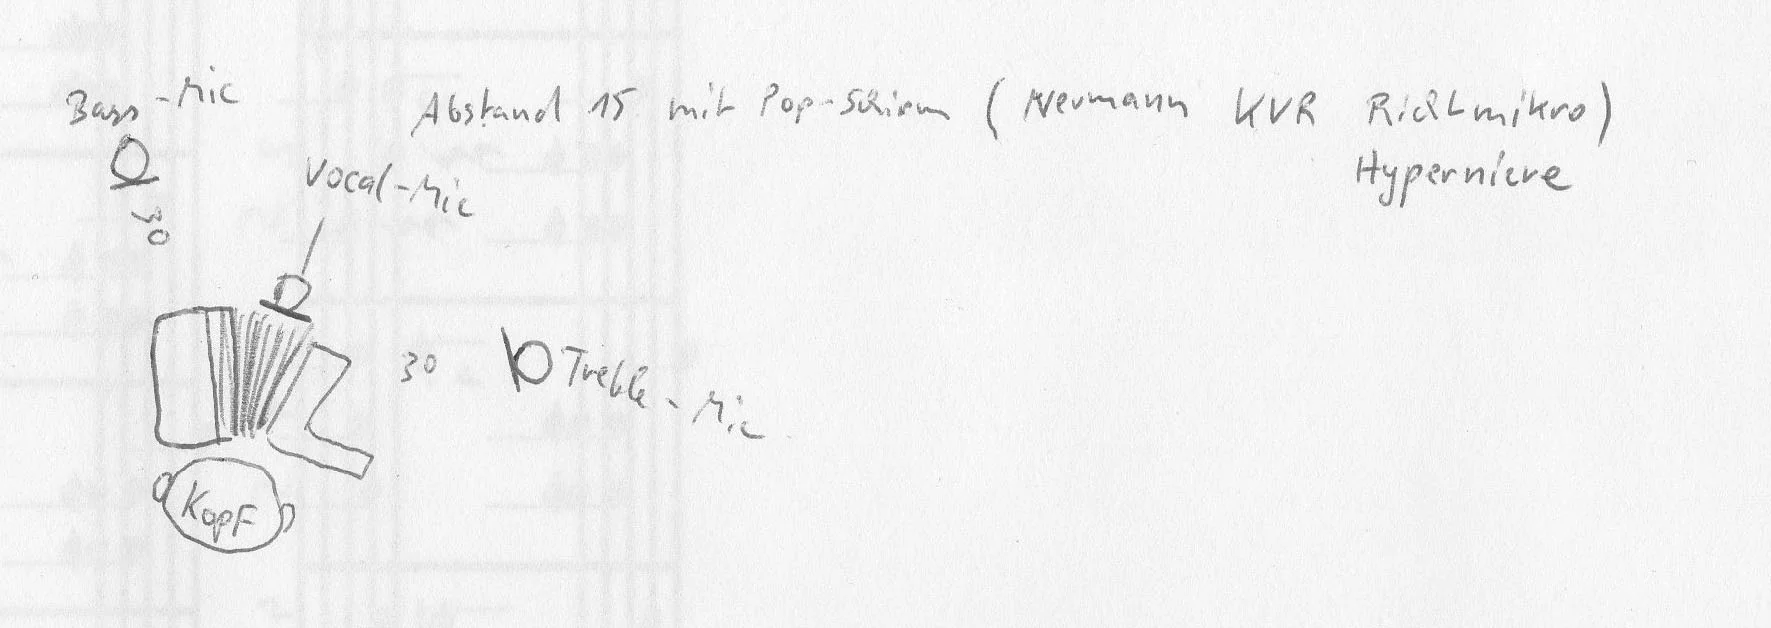 Bass-Mic
Abstand 15 mit Pop-Schirm (Neumann KVR Richtmikro)
Hyperniere
Vocal-Mic
30
30
Treble-Mic
Kopf